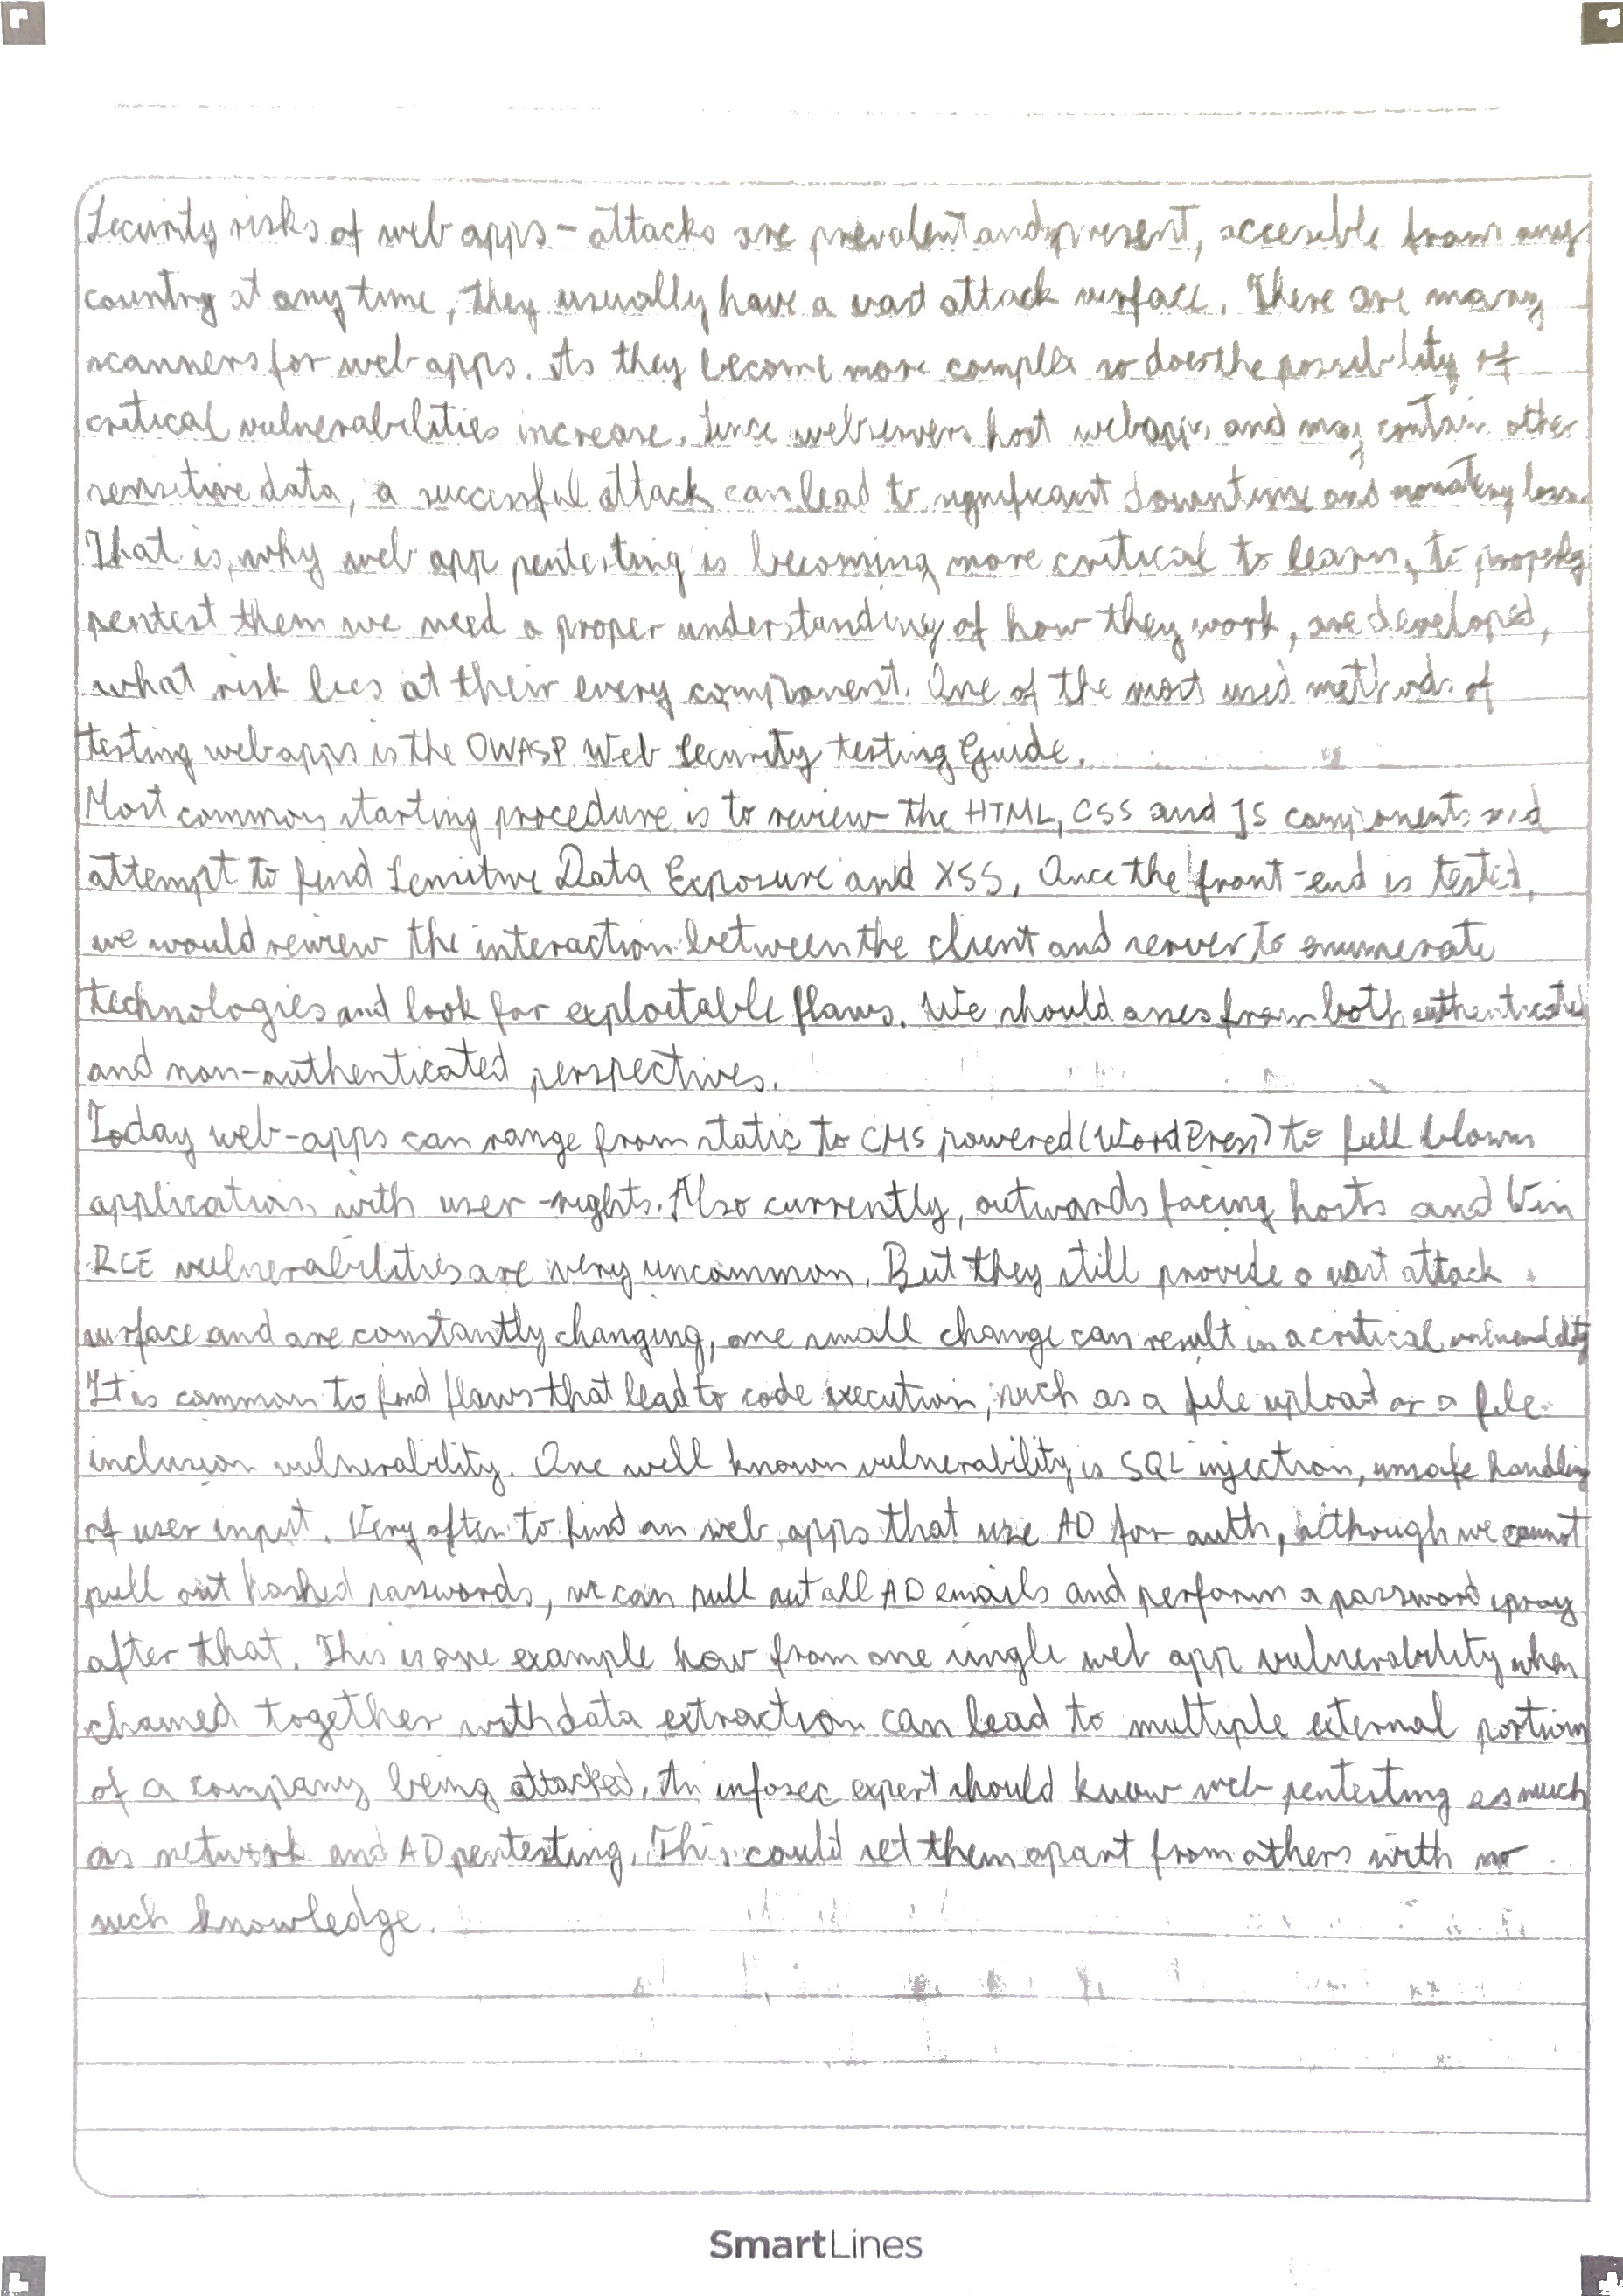 Security risks of web apps - attacks are prevalent and present, accesible from any
country at any time, they usually have a vast attack surface. There are many
scanners for web apps. As they become more complex so does the possibility of
critical vulnerabilities increase. Since webservers host webapps and may contain other
sensitive data, a successful attack can lead to significant downtime and loss.
That is why web app pentesting is becoming more critical to learn, to properly
pentest them we need a proper understanding of how they work, are developed,
what risk lies at their every component. One of the most used methods of
testing web apps is the OWASP Web Security Testing Guide.
Most common starting procedure is to review the HTML, CSS and JS components and
attempt to find Sensitive Data Exposure and XSS. Once the front-end is tested,
we would review the interaction between the client and server to enumerate
technologies and look for exploitable flaws. We should asses from both authenticated
and non-authenticated perspectives.
Today web-apps can range from static to CMS powered (WordPress) to full blown
application with user-rights. Also currently, outwards facing hosts and Win
RCE vulnerabilities are very uncommon. But they still provide a vast attack
surface and are constantly changing, one small change can result in a critical vulnerability
It is common to find flaws that lead to code execution, such as a file upload or a file
inclusion vulnerability. One well known vulnerability is SQL injection, unsafe handling
of user input. Very often to find an web apps that use AD for auth, although we cannot
pull out hashed passwords, we can pull out all AD emails and perform a password spray
after that. This is one example how from one single web app vulnerability when
chained together with data extraction can lead to multiple external portions
of a company being attacked. An infosec expert should know web pentesting as much
as network and AD pentesting. This could set them apart from others with no
such knowledge.
SmartLines